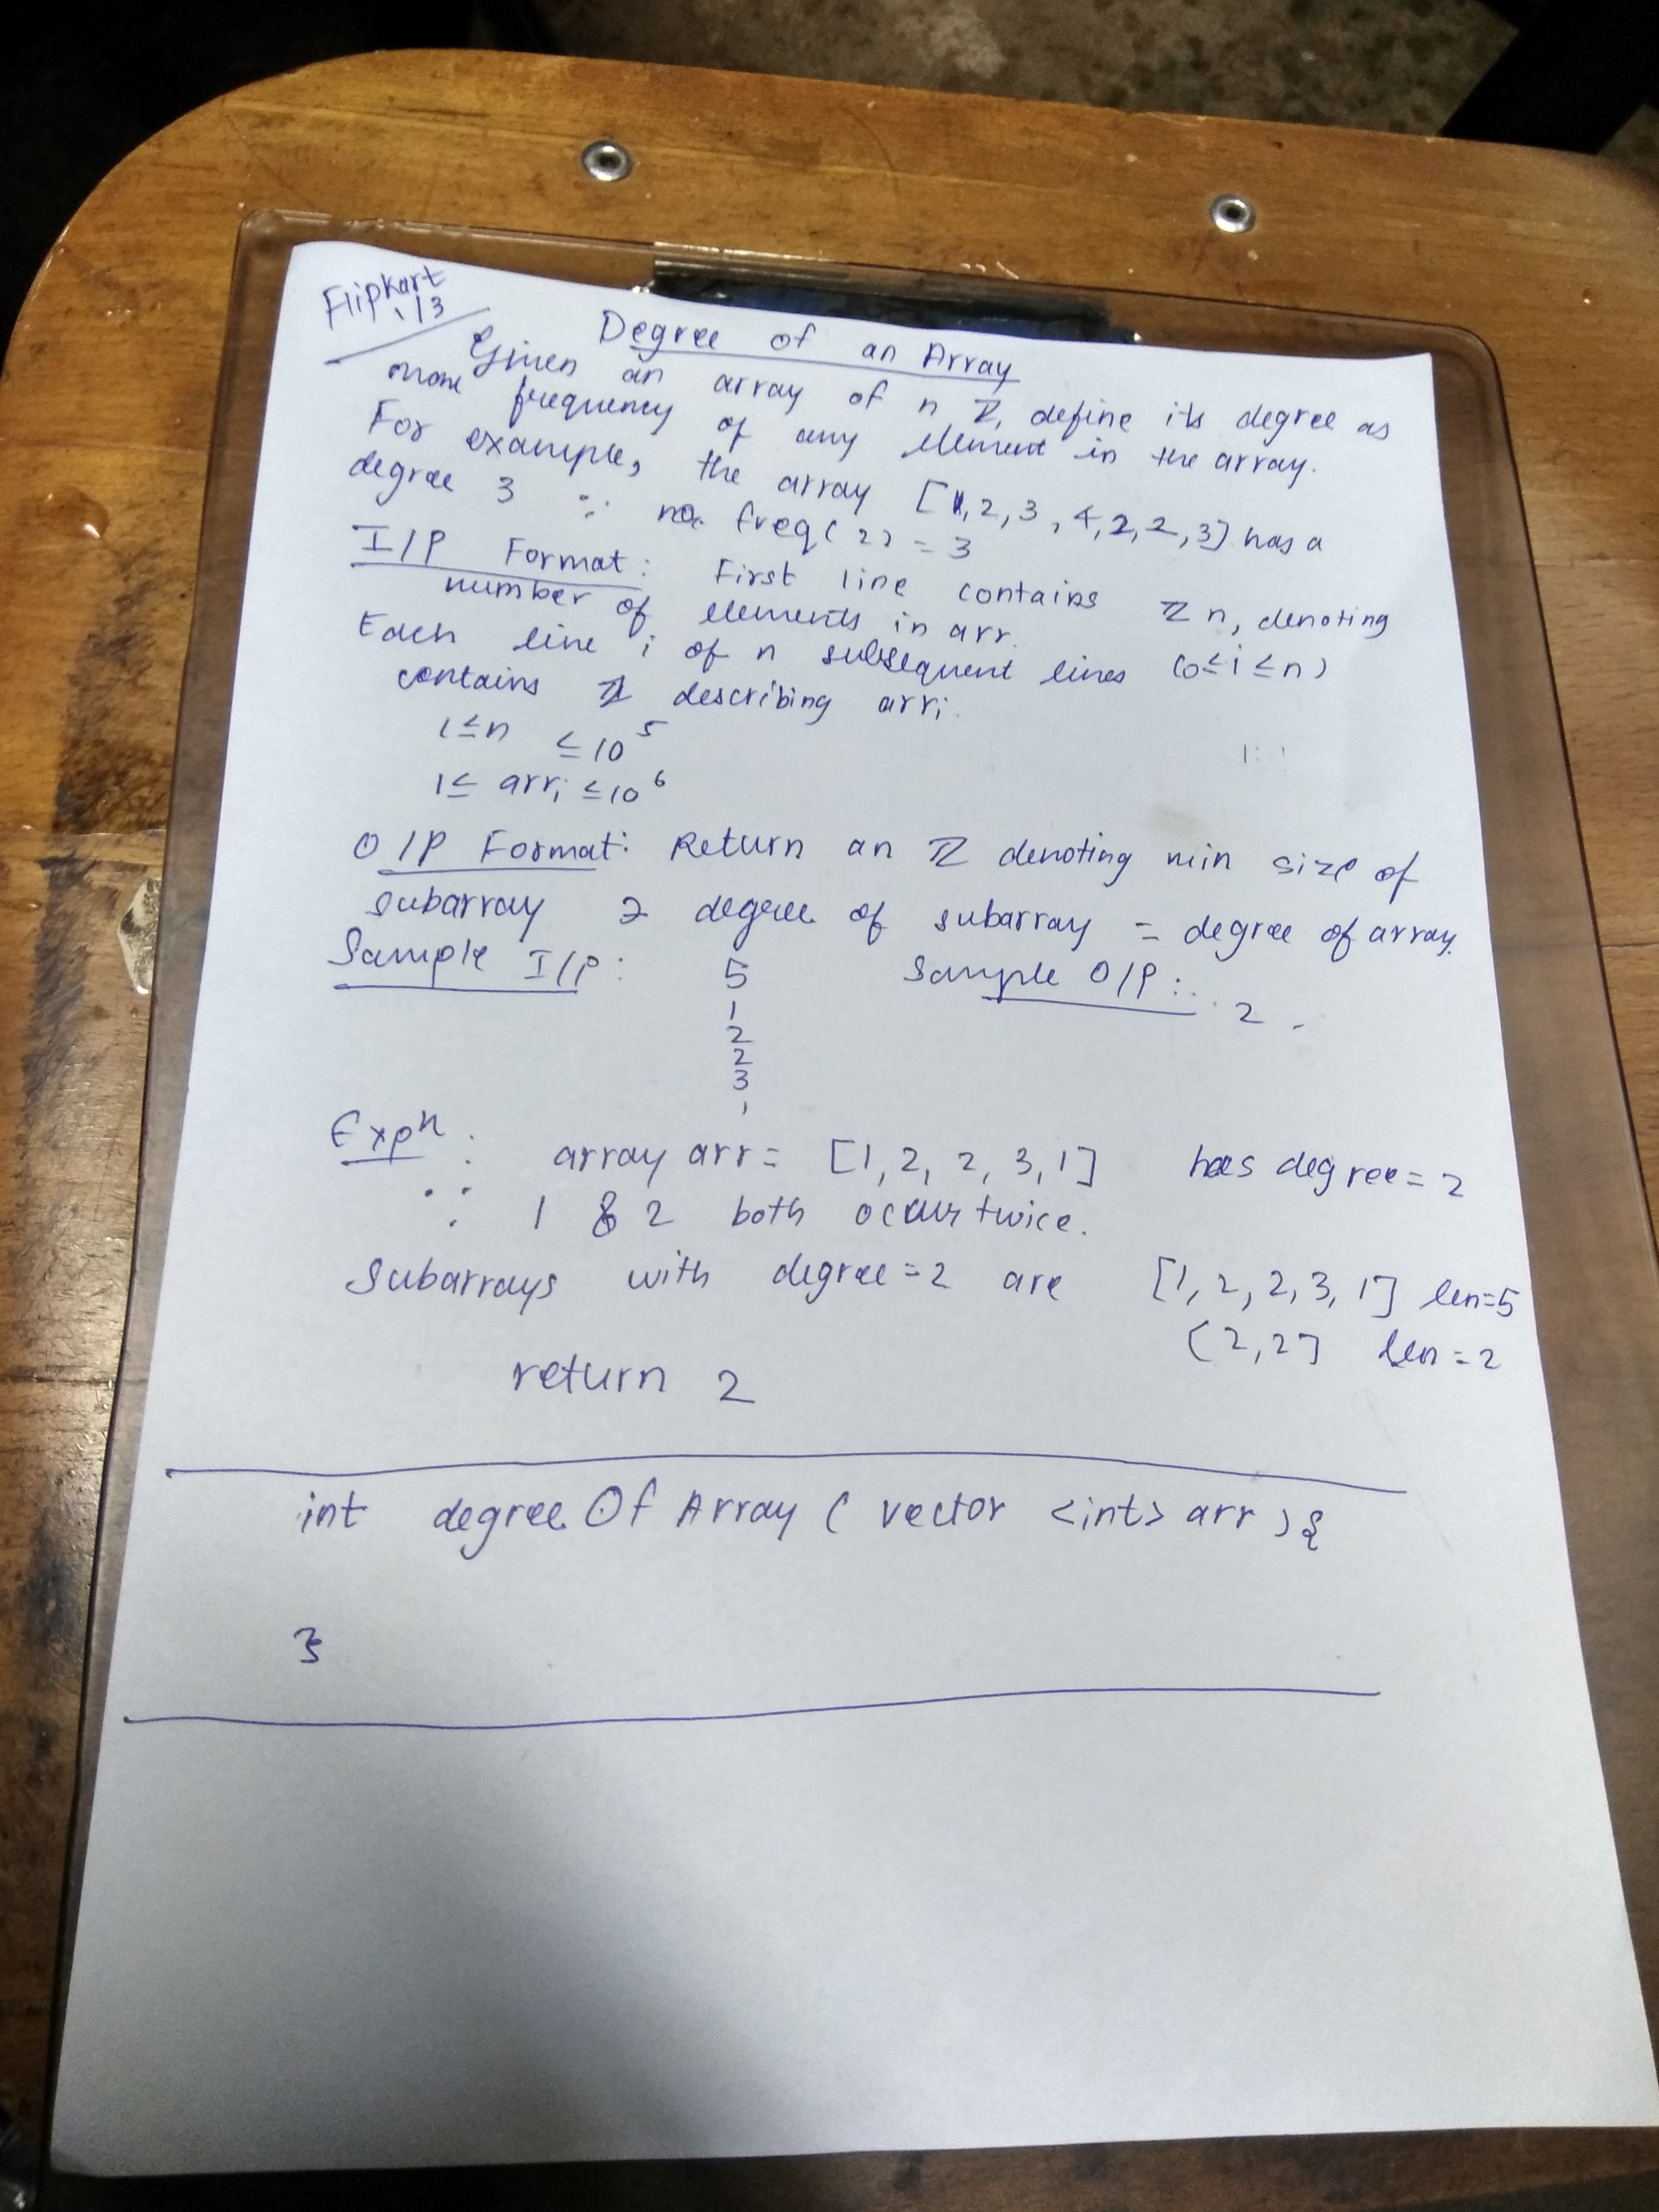 Flipkart
13
Degree of an Array
Given an array of n ℤ, define its degree as
max frequency of any element in the array.
For example, the array [1, 2, 3, 4, 2, 2, 3] has a
degree 3 ∵ freq(2) = 3
I/P Format: First line contains ℤ n, denoting
number of elements in arr.
Each line i of n subsequent lines (0≤i≤n)
contains ℤ describing arrᵢ.
1≤n ≤10⁵
1≤ arrᵢ ≤10⁶
O/P Format: Return an ℤ denoting min size of
subarray ∋ degree of subarray = degree of array.
Sample I/P: 5 Sample O/P: 2
1
2
2
3
1
Expⁿ: array arr = [1, 2, 2, 3, 1] has degree = 2
∵ 1 & 2 both occur twice.
Subarrays with degree=2 are [1, 2, 2, 3, 1] len=5
[2, 2] len=2
return 2
int degreeOfArray(vector <int> arr){
}